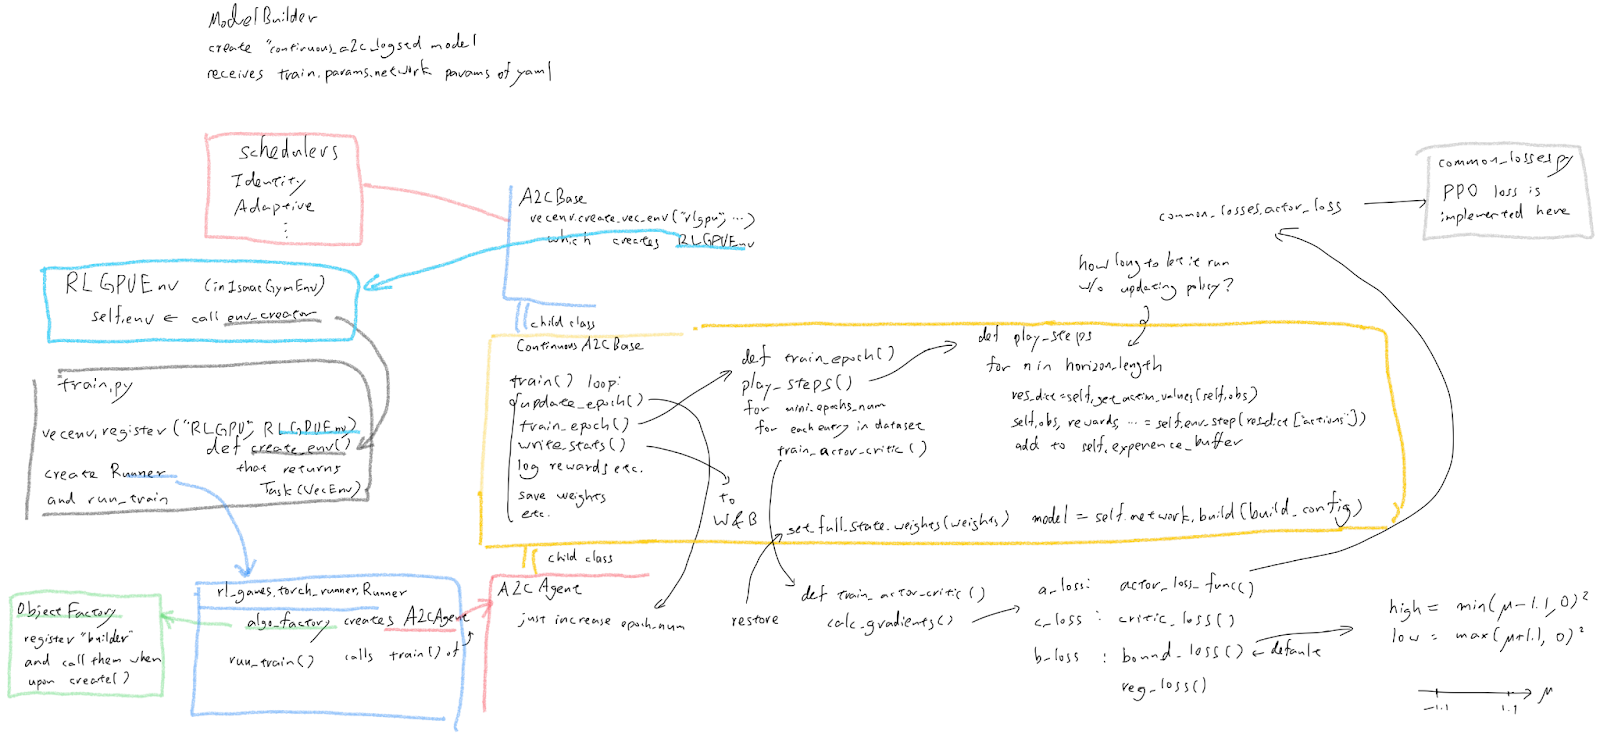 ModelBuilder
create "continuous_a2c_logstd model
receives train.params.network params of yaml
schedulers
Identity
Adaptive
⋮
A2CBase
vecenv.create_vec_env("rlgpu", ...)
which creates RLGPUEnv
RLGPUEnv (in IsaacGymEnv)
self.env ← call env_creator
child class
train.py
vecenv.register("RLGPU", RLGPUEnv)
def create_env()
that returns
Task(VecEnv)
create Runner
and run_train
Continuous A2CBase
train() loop:
update_epoch()
train_epoch()
write_stats()
log rewards etc.
save weights
etc.
to
W&B
def train_epoch()
play_steps()
for mini_epochs_num
for each entry in dataset
train_actor_critic()
how long to let it run
w/o updating policy?
def play_steps
for n in horizon_length
res_dict = self.get_action_values(self.obs)
self.obs, rewards ... = self.env_step(res_dict["actions"])
add to self.experience_buffer
set_full_state_weights(weights)
model = self.network.build(build_config)
common_losses.actor_loss
common_losses.py
PPO loss is
implemented here
child class
rl_games.torch_runner.Runner
algo_factory creates A2CAgent
run_train() calls train() of
ObjectFactory
register "builder"
and call them when
upon create()
A2CAgent
just increase epoch_num
restore
def train_actor_critic()
calc_gradients()
a_loss: actor_loss_func()
c_loss: critic_loss()
b_loss: bound_loss() ← default
reg_loss()
high = min(μ-1.1, 0)²
low = max(μ+1.1, 0)²
-1.1 1.1 μ